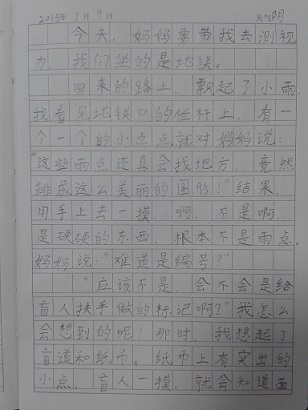 2015年7月9日 天气阴
今天，妈妈要带我去测视
力，我们坐的是地铁。
回来的路上，飘起了小雨，
我看见地铁口的栏杆上，有一
个一个的小点点就对妈妈说：
“这些雨点还真会找地方，竟然
排成这么美丽的图形！”结果，
用手上去一摸，啊，不是啊，
是硬硬的东西，根本不是雨点。
妈妈说：“难道是编号？”
“应该不是，会不会是给
盲人扶手做的标记啊？”我怎么
会想到的呢？那时，我想起了
盲道和纸币。纸币上有突出的
小点，盲人一摸，就会知道面